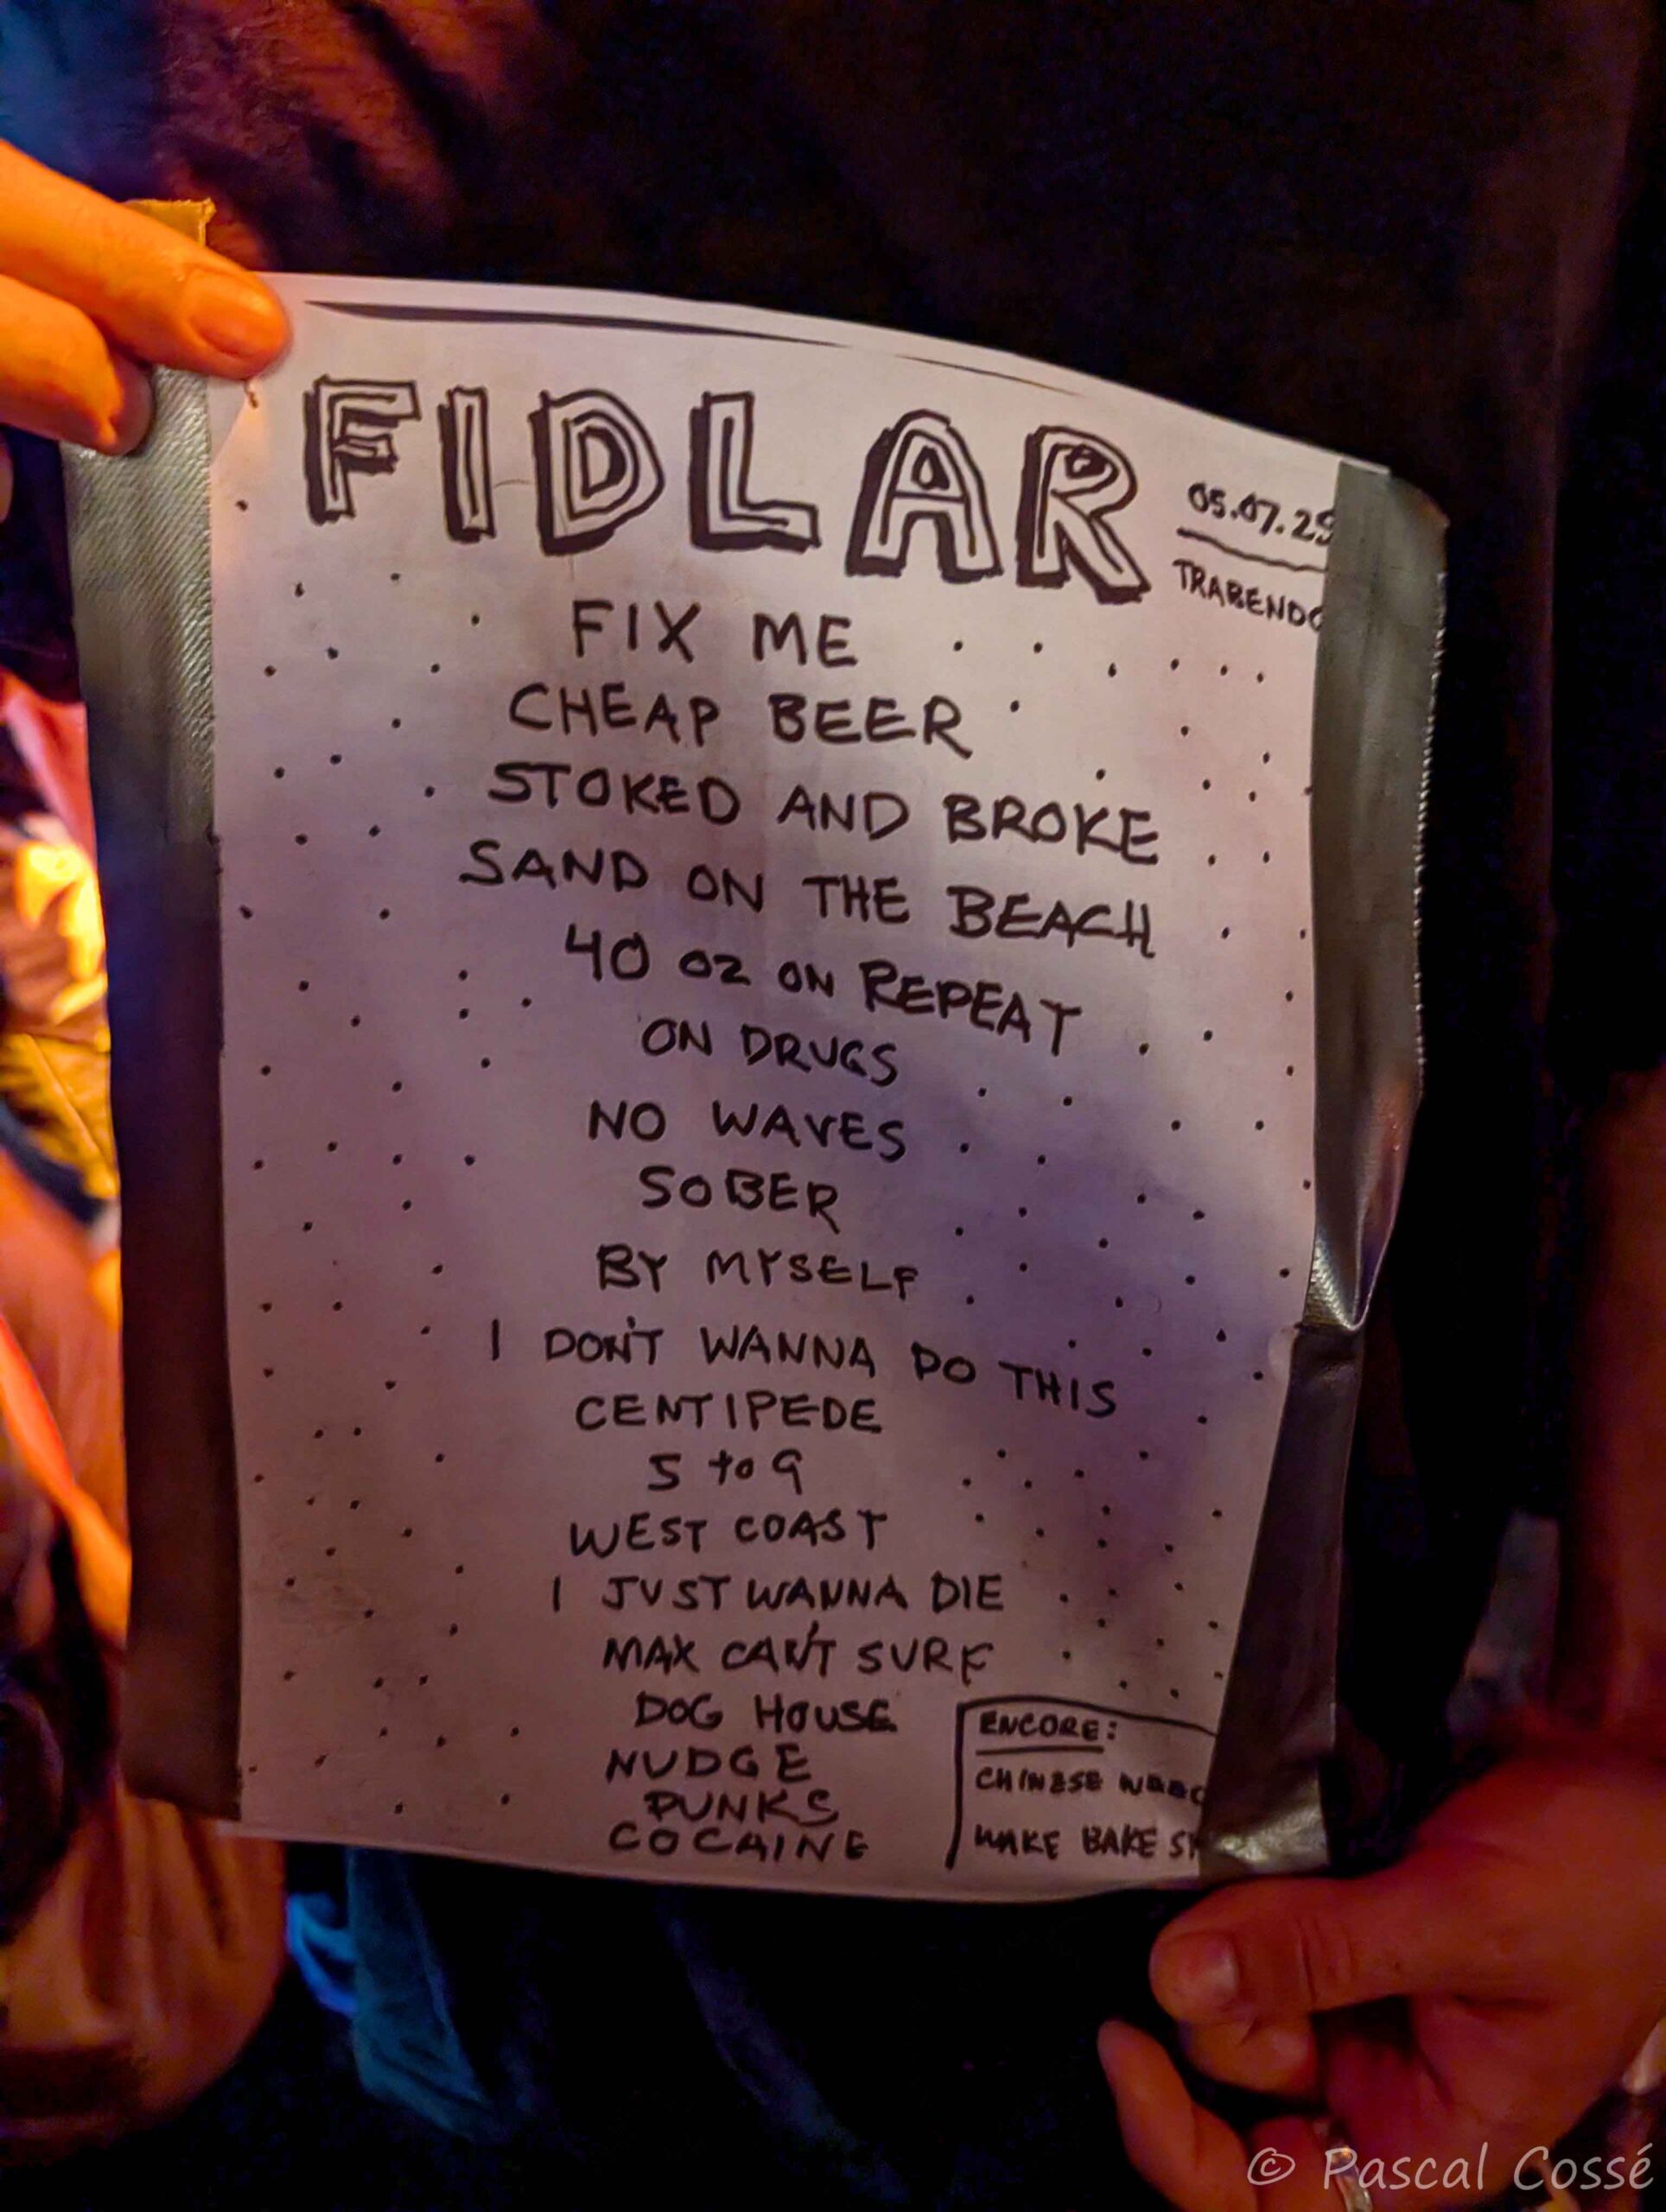 FIDLAR
05.07.25
TRABENDO
FIX ME
CHEAP BEER
STOKED AND BROKE
SAND ON THE BEACH
40 OZ ON REPEAT
ON DRUGS
NO WAVES
SOBER
BY MYSELF
I DON'T WANNA DO THIS
CENTIPEDE
5 to 9
WEST COAST
I JUST WANNA DIE
MAX CAN'T SURF
DOG HOUSE
NUDGE
PUNKS
COCAINE
ENCORE:
CHINESE
WAKE BAKE
© Pascal Cossé